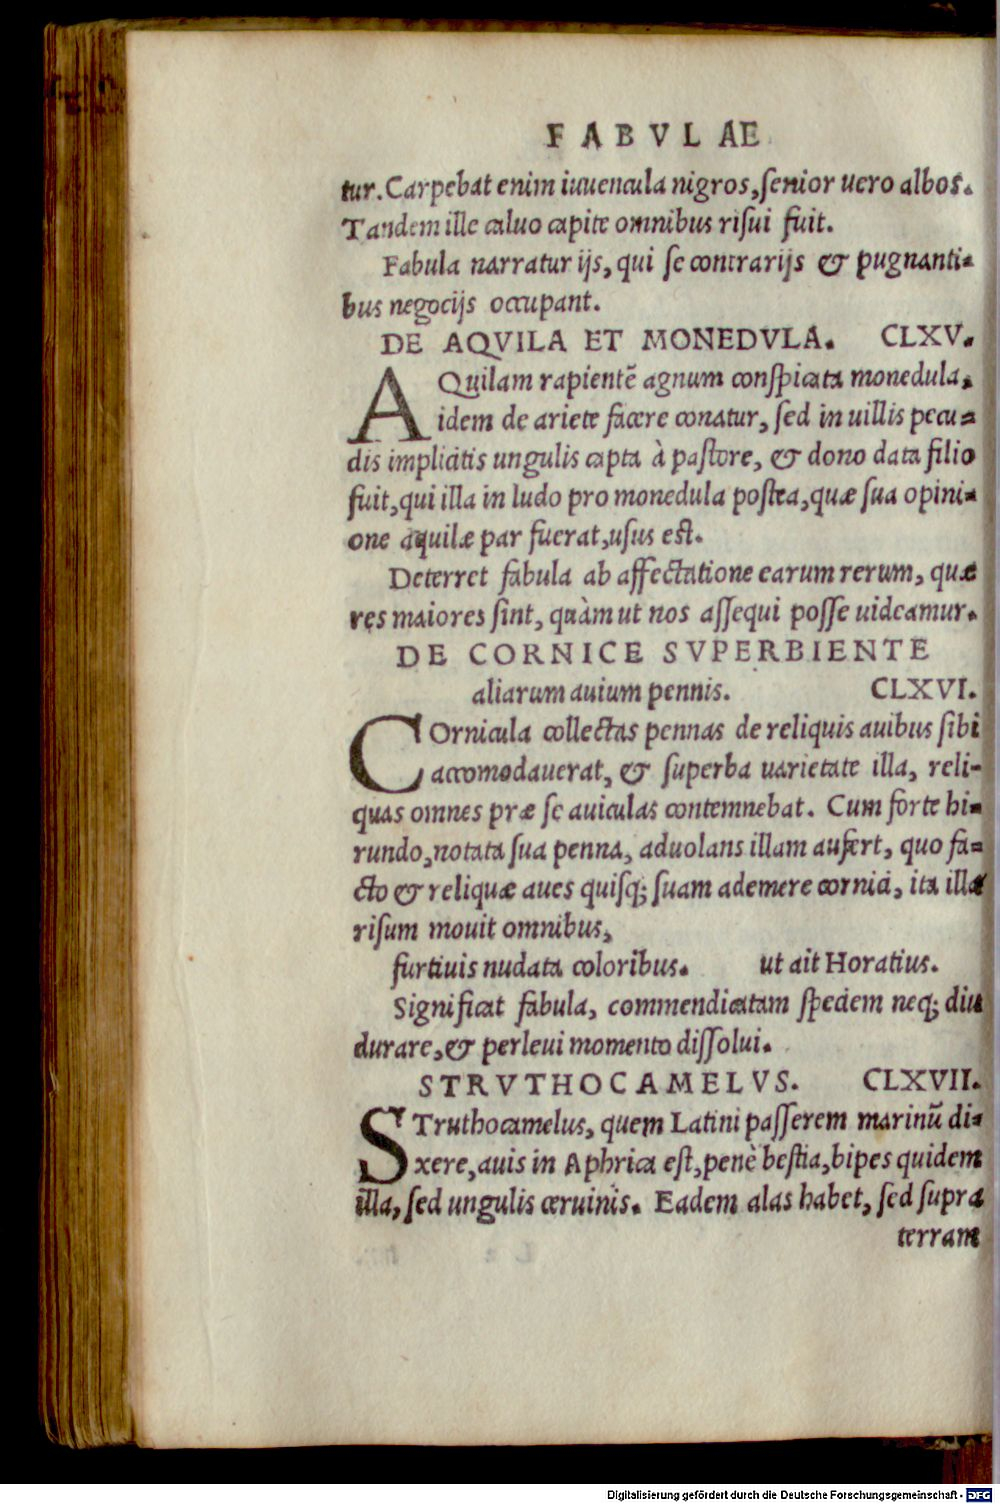 FABVLAE
tur. Carpebat enim iuuencula nigros, senior uero albos.
Tandem ille caluo capite omnibus risui fuit.
Fabula narratur ijs, qui se contrarijs & pugnanti-
bus negocijs occupant.
DE AQVILA ET MONEDVLA. CLXV.
AQuilam rapientē agnum conspicata monedula,
idem de ariete facere conatur, sed in uillis pecu-
dis implicitis ungulis capta à pastore, & dono data filio
fuit, qui illa in ludo pro monedula postea, quæ sua opini-
one aquilæ par fuerat, usus est.
Deterret fabula ab affectatione earum rerum, quæ
res maiores sint, quàm ut nos assequi posse uideamur.
DE CORNICE SVPERBIENTE
aliarum auium pennis. CLXVI.
COrnicula collectas pennas de reliquis auibus sibi
accomodauerat, & superba uarietate illa, reli-
quas omnes præ se auiculas contemnebat. Cum forte hi-
rundo, notata sua penna, aduolans illam aufert, quo fa-
cto & reliquæ aues quisq; suam ademere cornici, ita illa
risum mouit omnibus,
furtiuis nudata coloribus. ut ait Horatius.
Significat fabula, commendicatam speciem neq; diu
durare, & perleui momento dissolui.
STRVTHOCAMELVS. CLXVII.
STruthocamelus, quem Latini passerem marinū di-
xere, auis in Aphrica est, penè bestia, bipes quidem
illa, sed ungulis ceruinis. Eadem alas habet, sed supra
terram
Digitalisierung gefördert durch die Deutsche Forschungsgemeinschaft - DFG